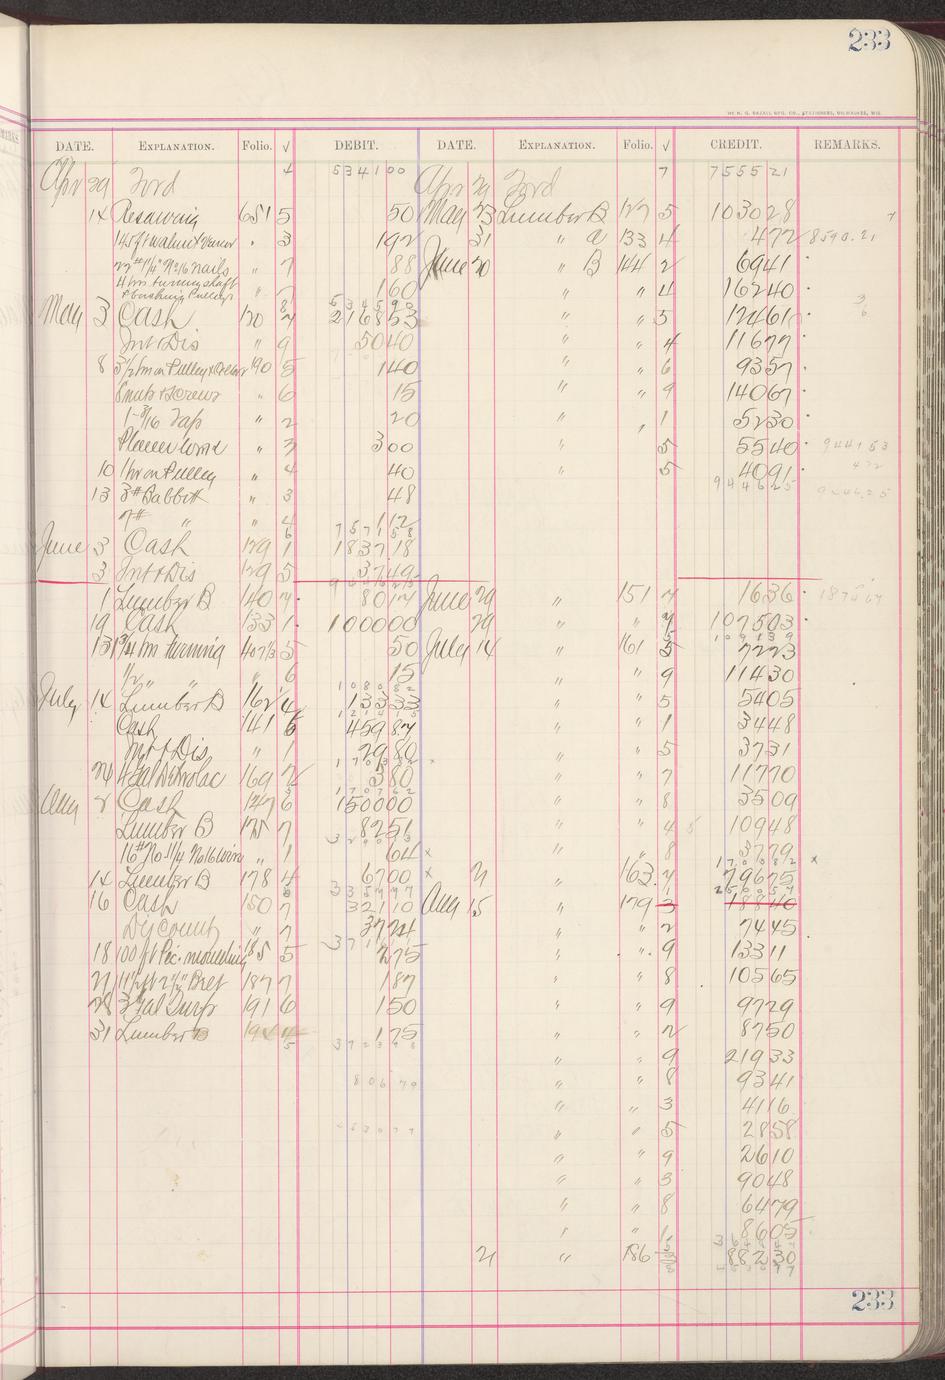 233
DATE. EXPLANATION. Folio. √ DEBIT. DATE. EXPLANATION. Folio. √ CREDIT. REMARKS.
Apr 29 Ford 4 5341 00 Apr 29 Ford 7 7555 21
14 Resawing 651 5 50 May 23 Lumber B 127 5 1030 28
145 ft walnut veneer " 3 1 92 31 " a 133 4 4 72 8590.21
22# 1 1/4" No 16 nails " 7 88 June 20 " B 144 2 69 41
4 hrs turning shaft
& bushing Pulleys " 7 1 60 " " 4 162 40
8 5345 90
May 3 Cash 120 7 2168 53 " " 5 124 61
Int & Dis " 9 50 40 " " 4 116 77
8 3 1/2 hrs on Pulley 190 5 1 40 " " 6 93 57
8 nuts & screws " 6 15 " " 9 140 67
1 - 3/16 Tap " 2 20 " " 1 52 30
" 3 3 00 " 5 55 40 9441 53
10 1 hr on Pulley " 4 40 " 5 40 91 4 72
13 3# Babbitt " 3 48 9446 25 9446.25
7# " " 4 1 12
6 7571 58
June 3 Cash 129 1 1837 18
3 Int & Dis 129 5 37 49
1 Lumber B 140 7 80 17 June 29 " 151 7 16 36
19 Cash 133 1 1000 00 29 " " 7 1075 03
1091 39
13 1 3/4 hrs turning 407 1/3 5 50 July 14 " 161 5 72 23
1/2 " " 6 15 " " 9 114 30
1080 82
July 14 Lumber B 162 4 133 33 " " 5 54 05
Cash 141 6 459 87 " " 1 34 48
Int & Dis " 1 29 80 " " 5 37 31
24 169 2 3 80 " " 7 117 70
1707 62
Aug 2 Cash 147 6 1500 00 " " 8 35 09
Lumber B 175 7 82 51 " " 4 109 48
16# No 1 1/4 No 16 wire " 1 64 " " 8 37 79
1700 82
14 Lumber B 178 4 67 00 21 " 163 7 796 75
16 Cash 150 7 321 10 Aug 15 " 179 3 188 40
Discount " 7 37 24 " " 2 74 45
18 100 ft Pic. moulding 185 5 2 75 " " 9 133 11
21 187 7 1 87 " " 8 105 65
28 3 Gal Turp 191 6 1 50 " " 9 97 29
31 Lumber B 194 4 1 75 " " 2 87 50
5 3723 98 " " 9 219 33
806 79 " " 8 93 41
" " 3 41 16
" " 5 28 58
" " 9 26 10
" " 3 90 48
" " 8 64 79
" " 1 86 05
21 " 186 882 30
4530 77
233